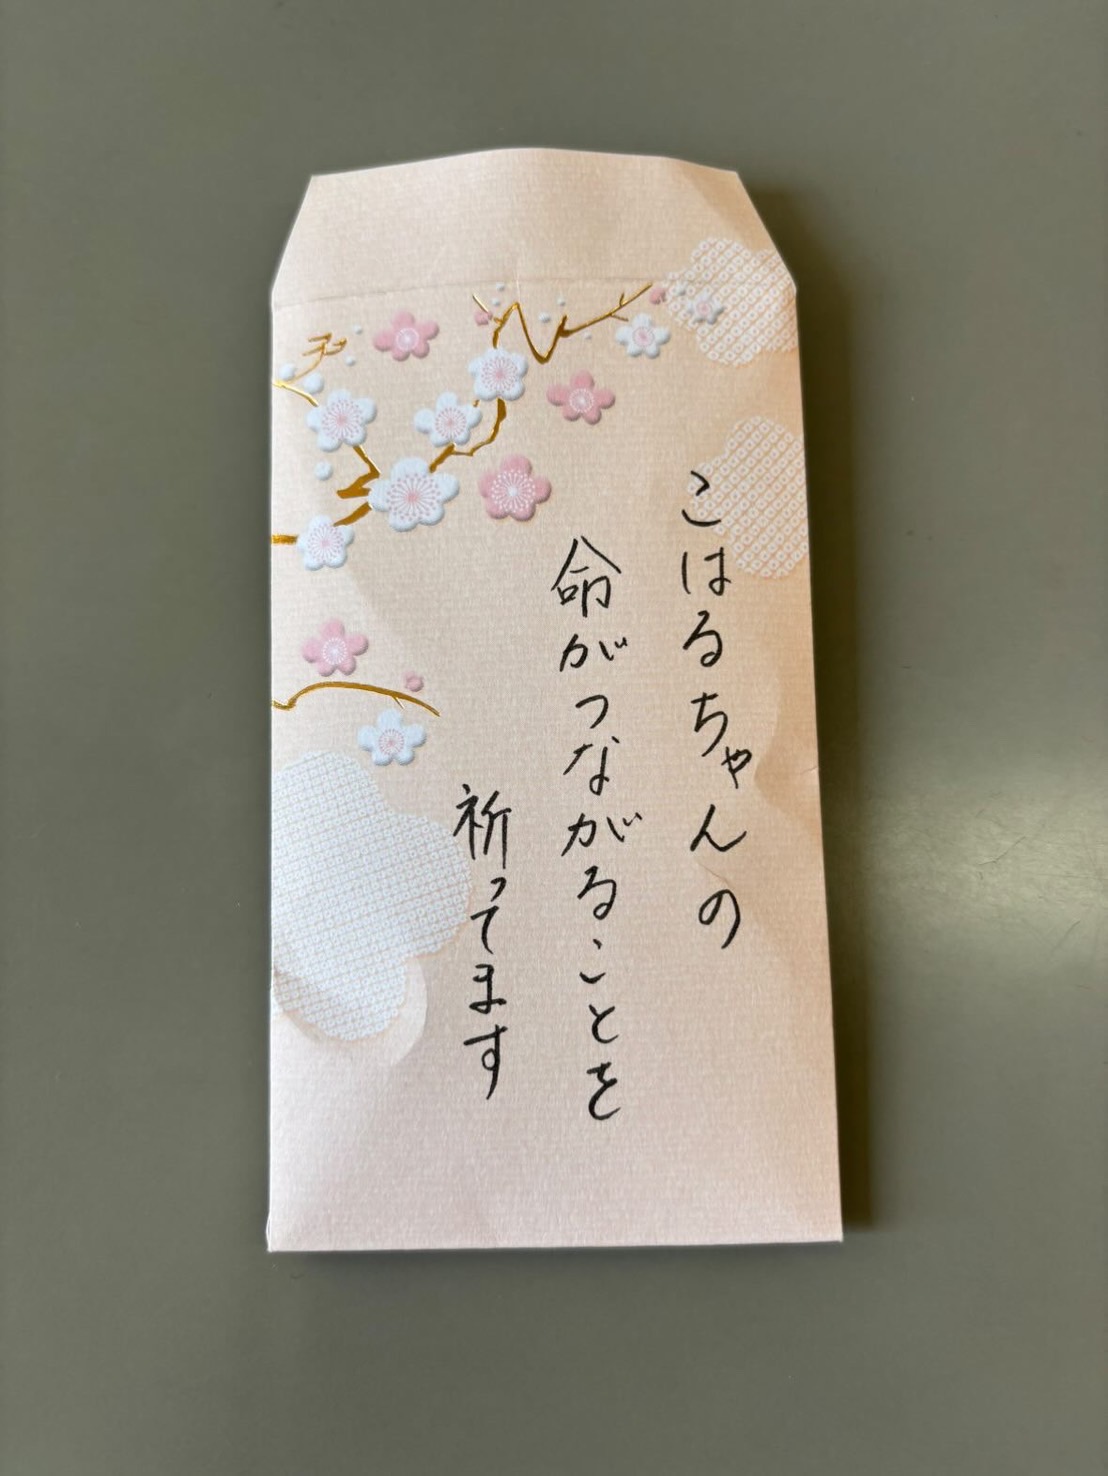 こはるちゃんの
命がつながることを
祈ってます